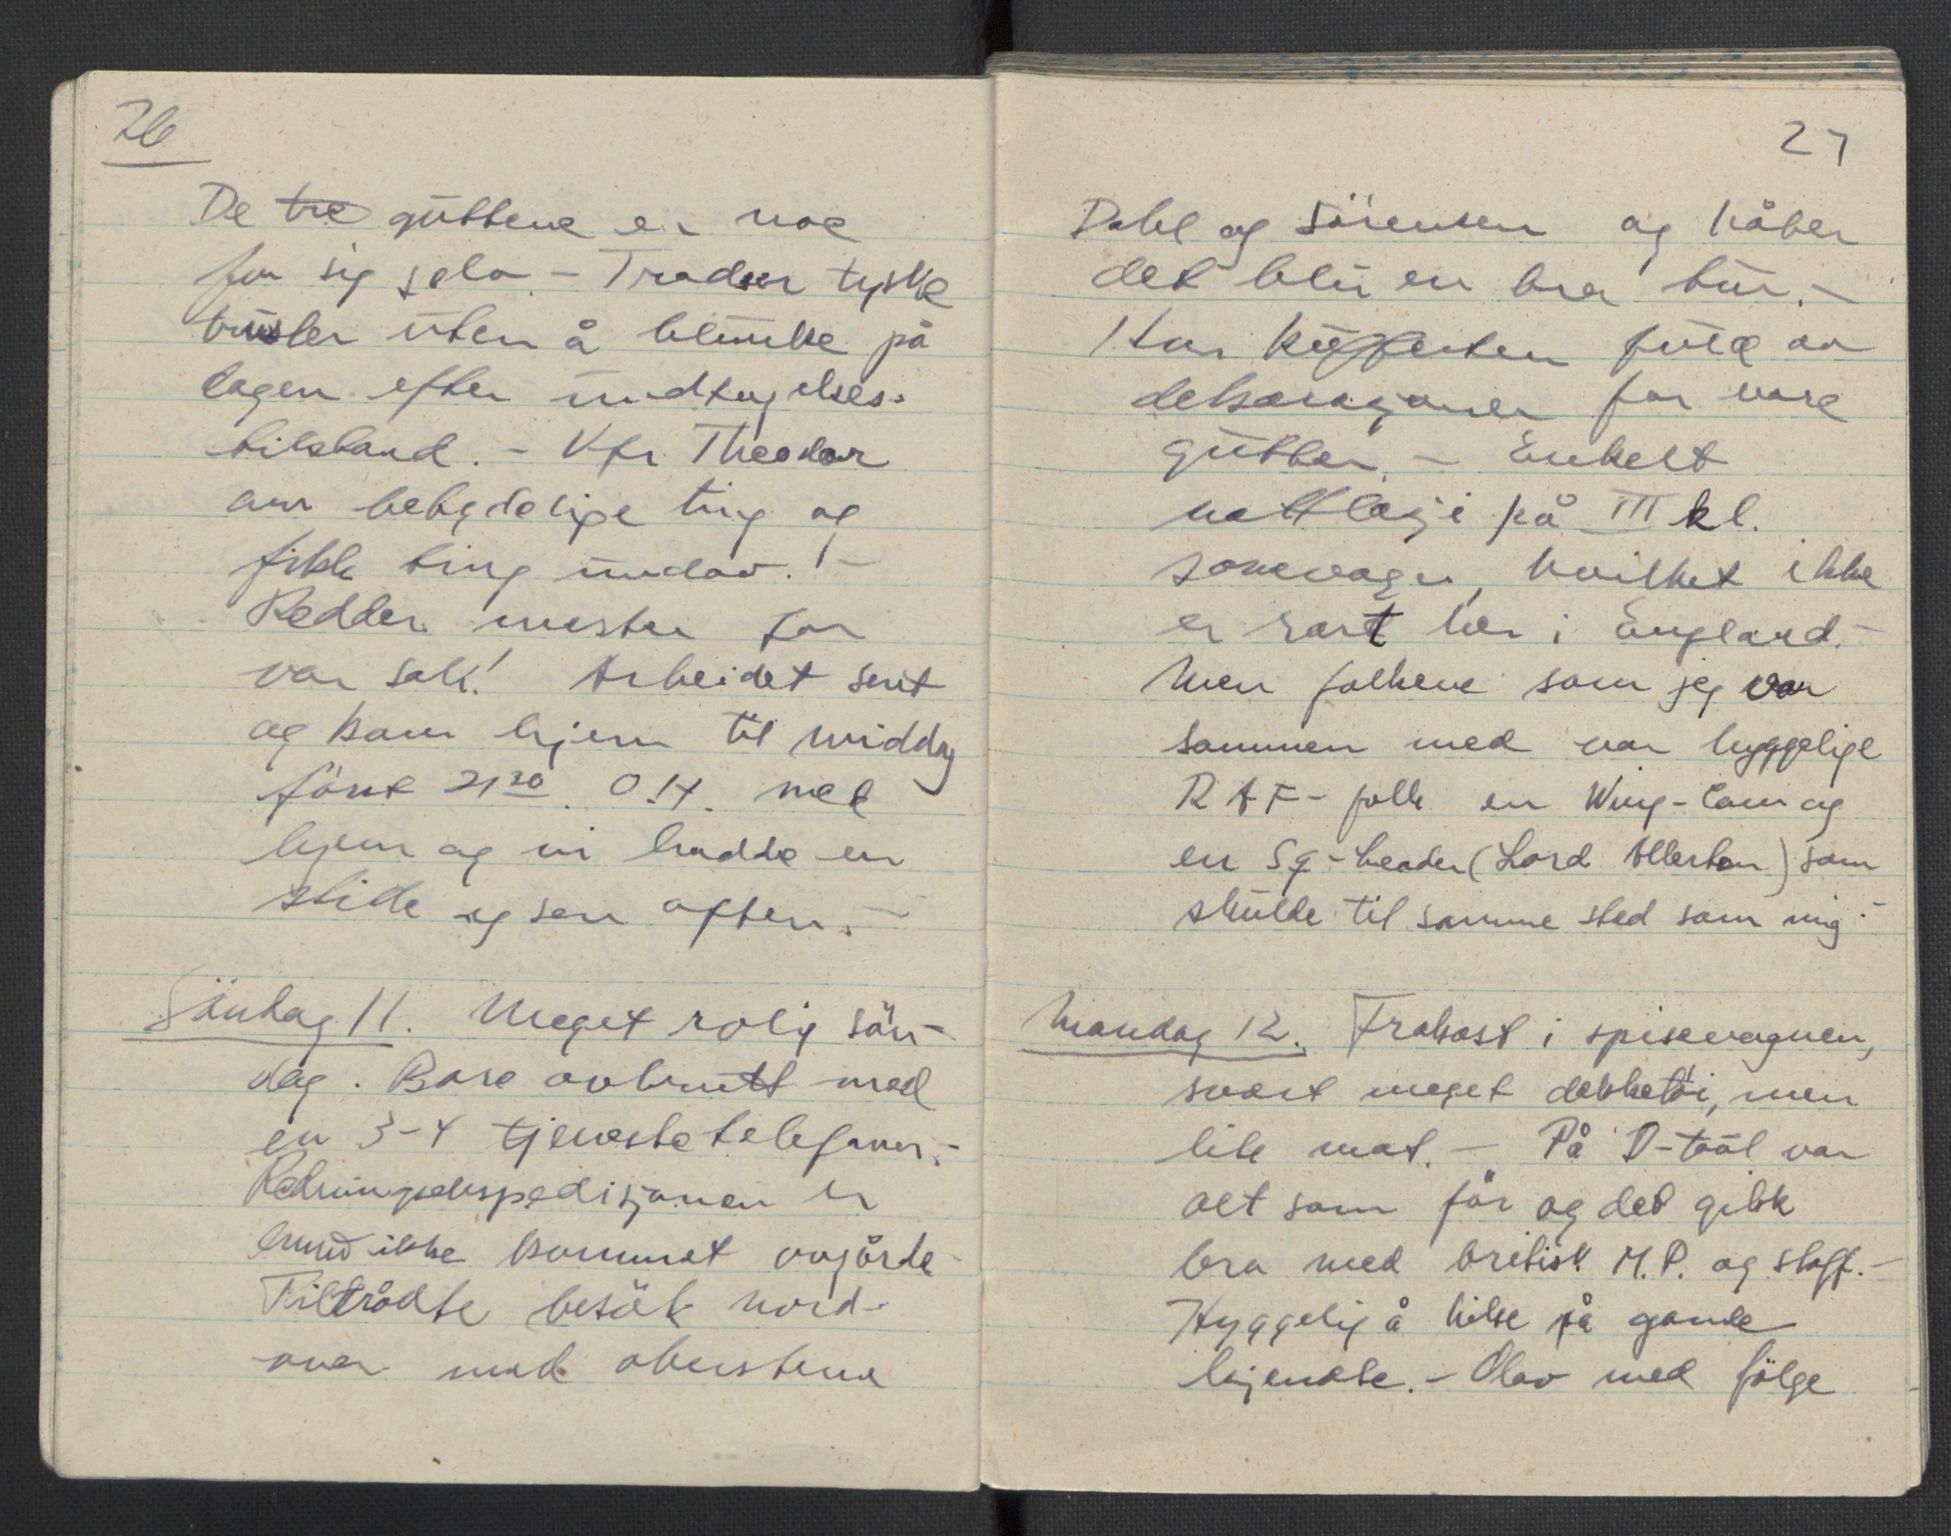 26
De tre guttene er noe
for sig selv. - Tradser tyske
trusler uten å blunke på
dagen efter undtagelses-
tilstand. - Kfr. Theodor
om betydelige ting og
fikk ting undav. ! -
Redder mester for
vår sak! Arbeidet sent
og kom hjem til middag
först 21 30. O.H. med
hjem og vi hadde en
stille og sen aften. -
Söndag 11. Meget rolig sön-
dag. Bare avbrutt med
en 3-4 tjenestetelefoner. -
Redningsekspedisjonen er
ennu ikke kommet avgårde
Tiltrådte besök nord-
over med oberstene
27
Dahl og Sörensen og håber
det blir en bra tur. -
Har kufferten full av
dekorasjoner for våre
gutter. - Enkelt
nattleje på III kl.
sovevogn, hvilket ikke
er rart her i England. -
Men folkene som jeg var
sammen med var hyggelige
RAF-folk en Wing-Com og
en Sq-Leader (Lord Allerton) som
skulde til samme sted som mig. -
Mandag 12. Frokost i spisevognen,
svært meget dekketöi, men
lite mat. - På D-tool var
alt som för og det gikk
bra med britisk M.P. og staff. -
Hyggelig å hilse på gamle
kjendte. - Olav med fölge